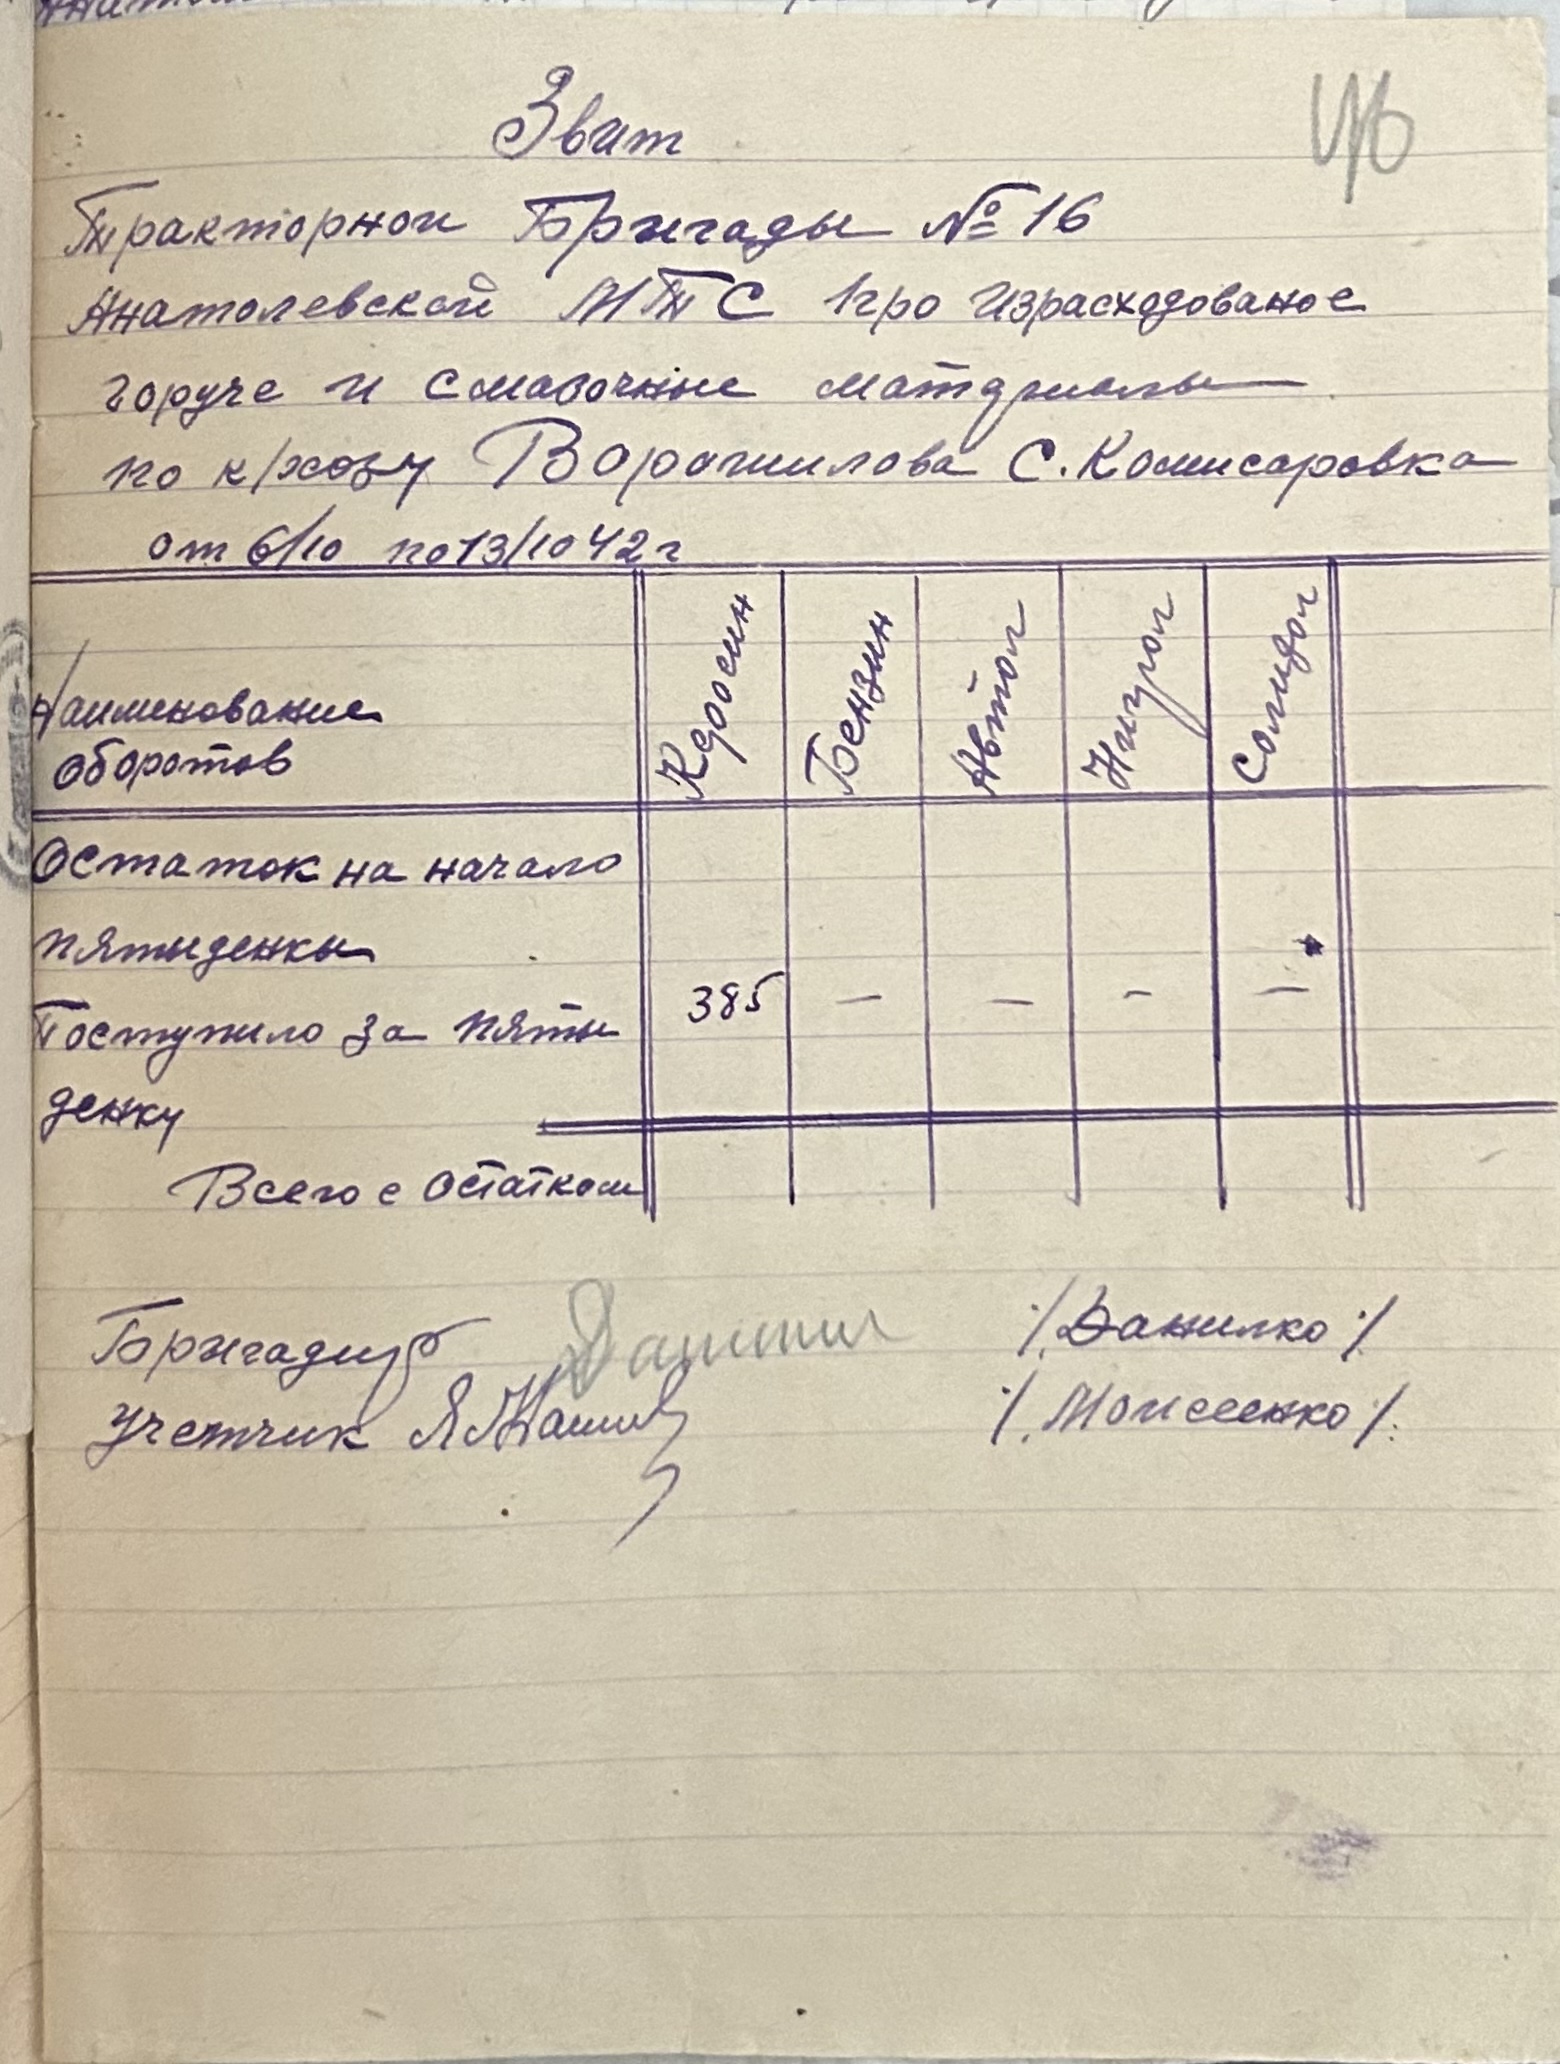 Звит
Тракторной Бригады № 16
Анатолевской МТС про израсходованое
горуче и смазочные материалы
по к/хозу Ворошилова С. Комисаровка
от 6/10 по 13/10 42 г
Наименование оборотов Керосин Бензин Автол Нигрол Солидол
Остаток на начало
пятыденкы
Поступило за пяты 385 — — — —
денку
Всего с остатком
Бригадир /. Данилко ./
Учетчик /. Моисеенко ./